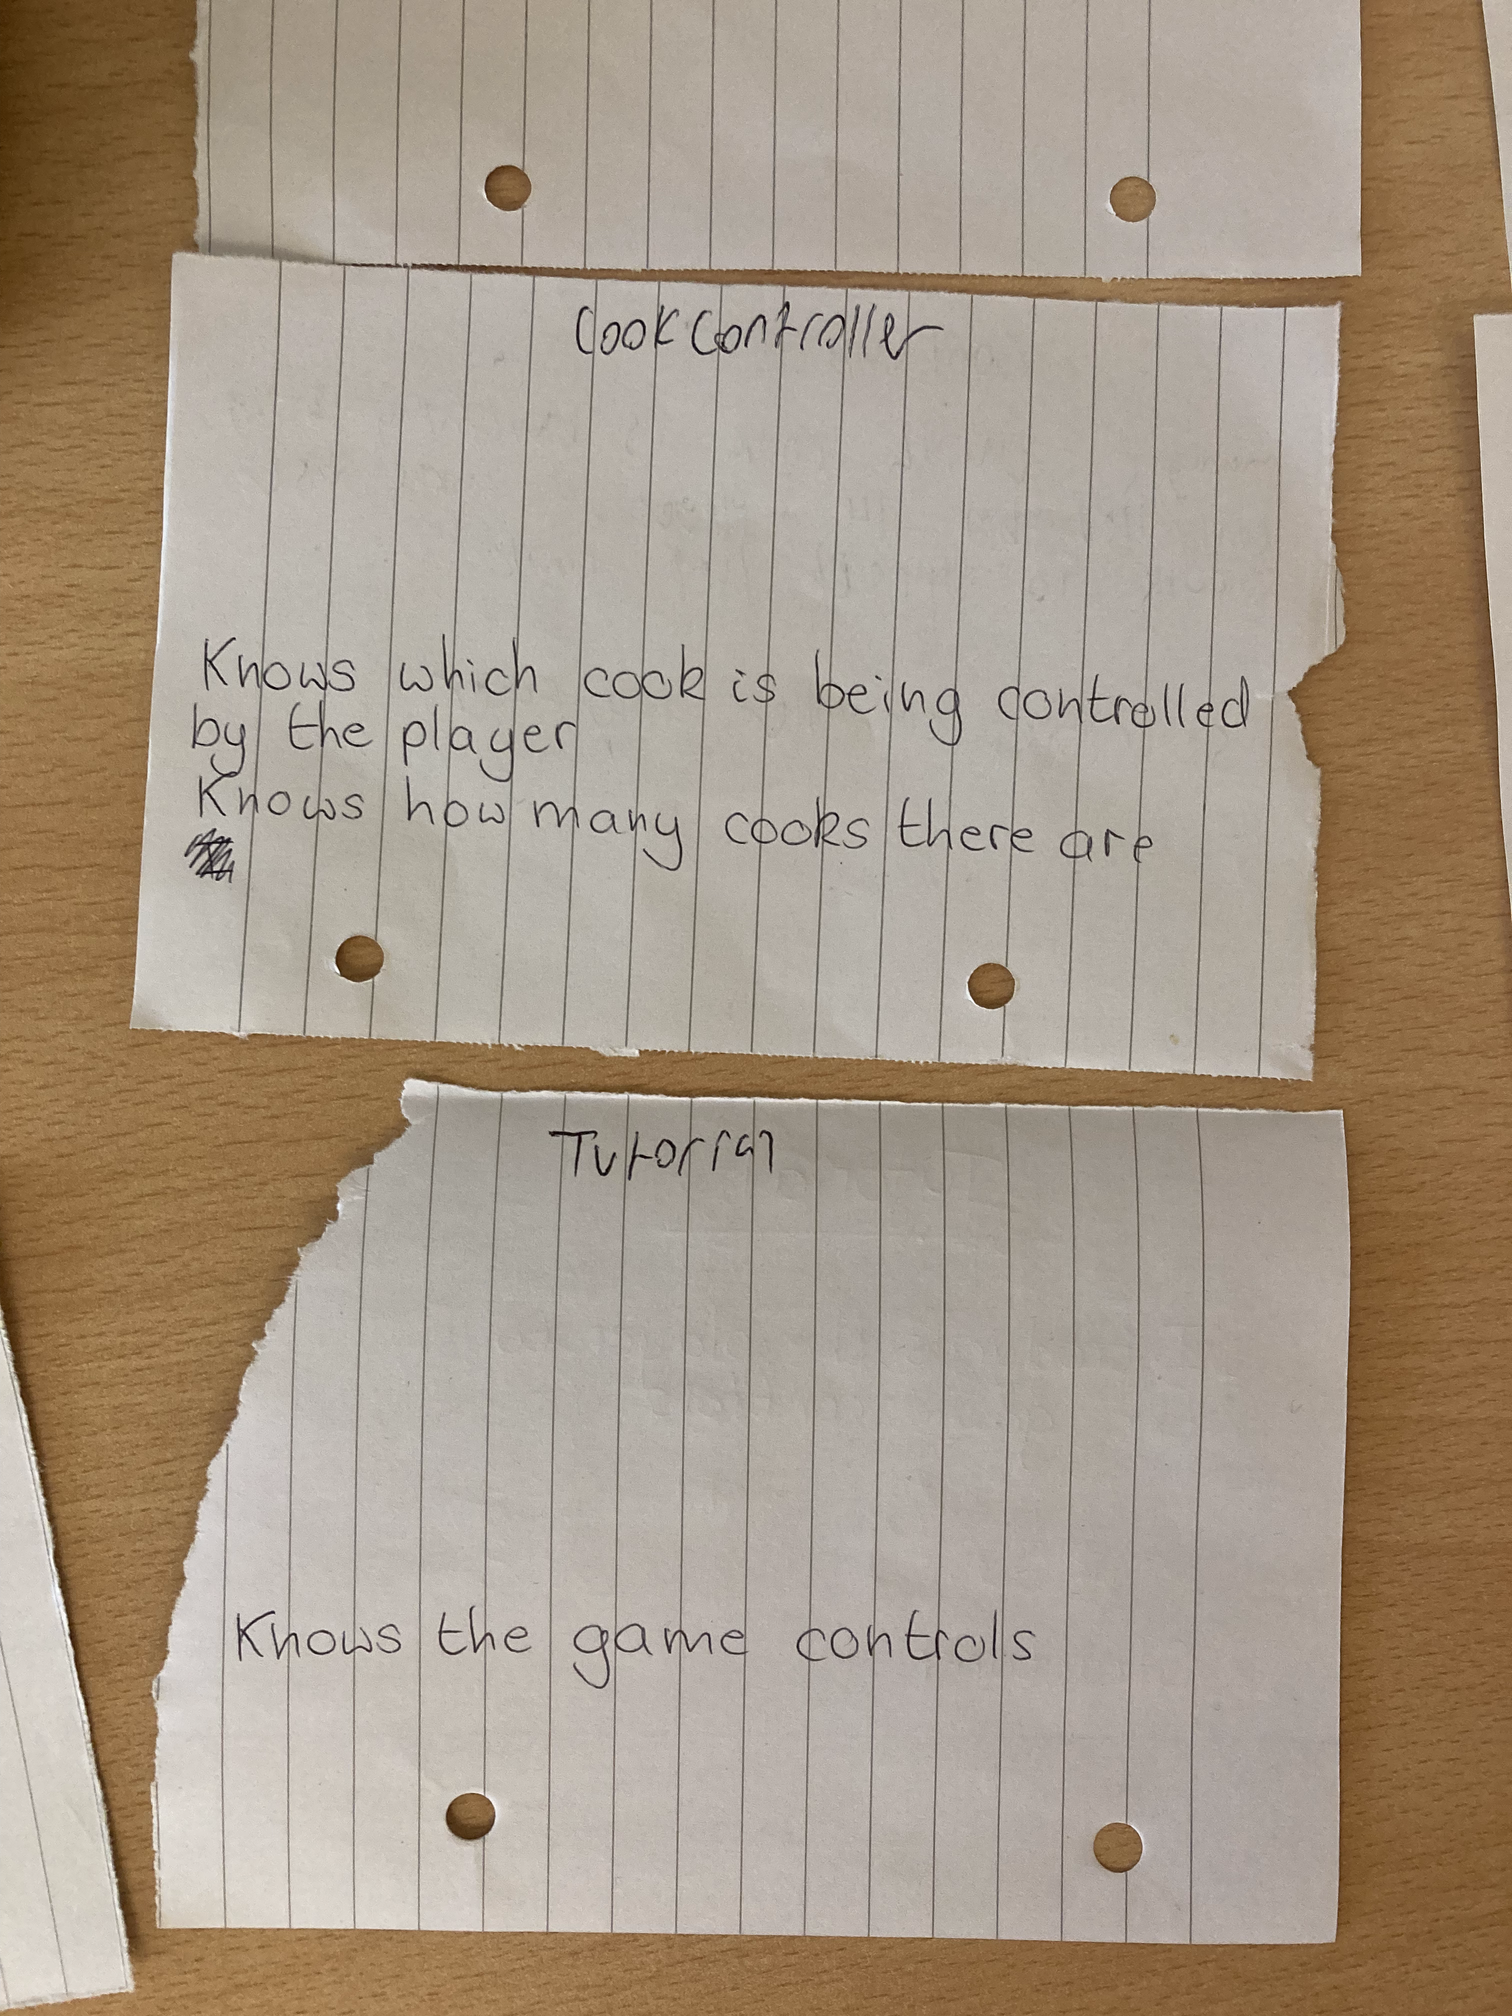 CookController
Knows which cook is being controlled
by the player
Knows how many cooks there are
Tutorial
Knows the game controls